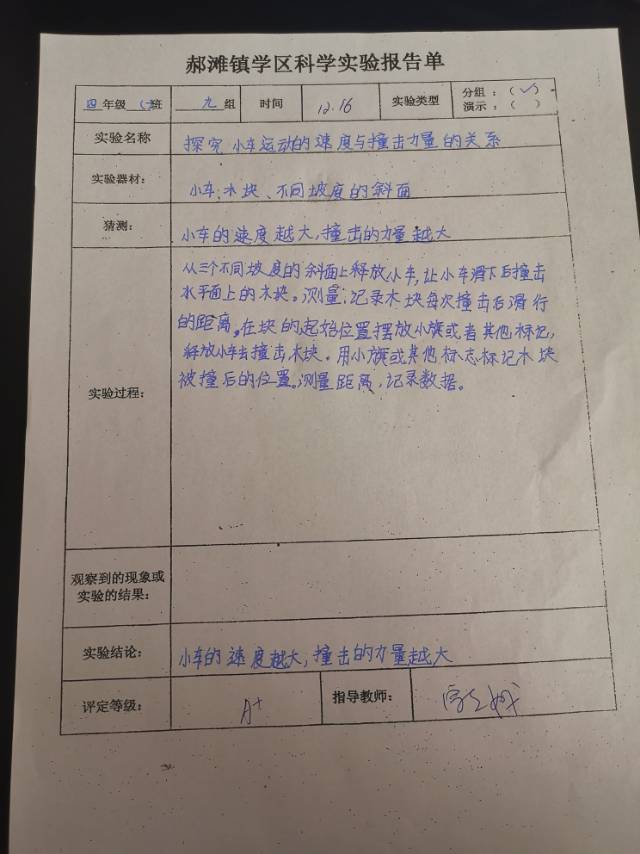 郝滩镇学区科学实验报告单
四 年级 (一)班 九 组 时间 12.16 实验类型 分组：（√）
演示：（ ）
实验名称 探究小车运动的速度与撞击力量的关系
实验器材： 小车、木块、不同坡度的斜面
猜测： 小车的速度越大,撞击的力量越大
实验过程：
从三个不同坡度的斜面上释放小车,让小车滑下后撞击
水平面上的木块。测量,记录木块每次撞击后滑行
的距离。在块的起始位置摆放小旗或者其他标记,
释放小车去撞击木块。用小旗或其他标志标记木块
被撞后的位置。测量距离,记录数据。
观察到的现象或
实验的结果：
实验结论： 小车的速度越大,撞击的力量越大
评定等级： A+ 指导教师：